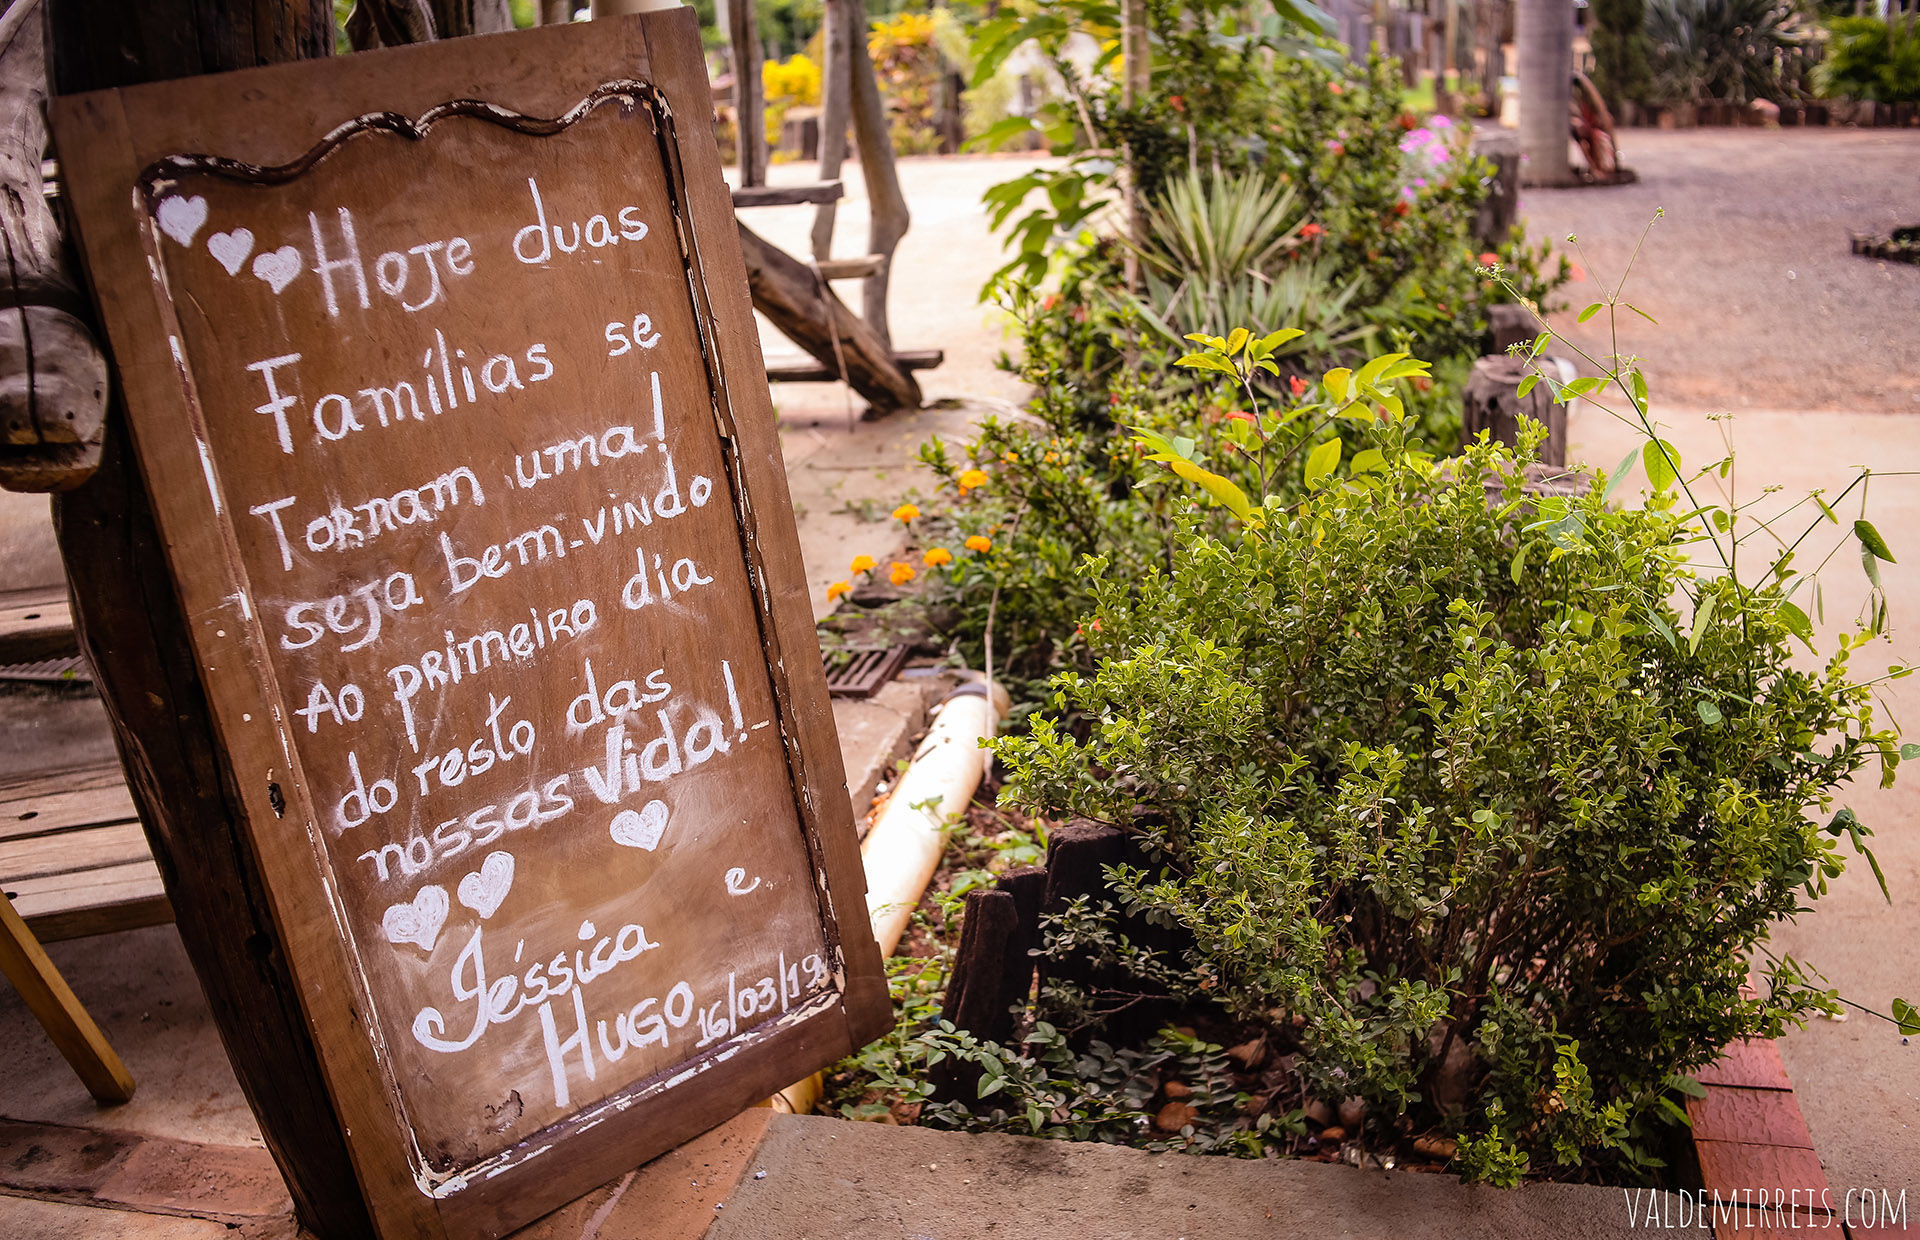 Hoje duas
Famílias se
Tornam uma!
seja bem-vindo
Ao primeiro dia
do resto das
nossas Vida!
e
Jéssica
Hugo 16/03/19
VALDEMIRREIS.COM